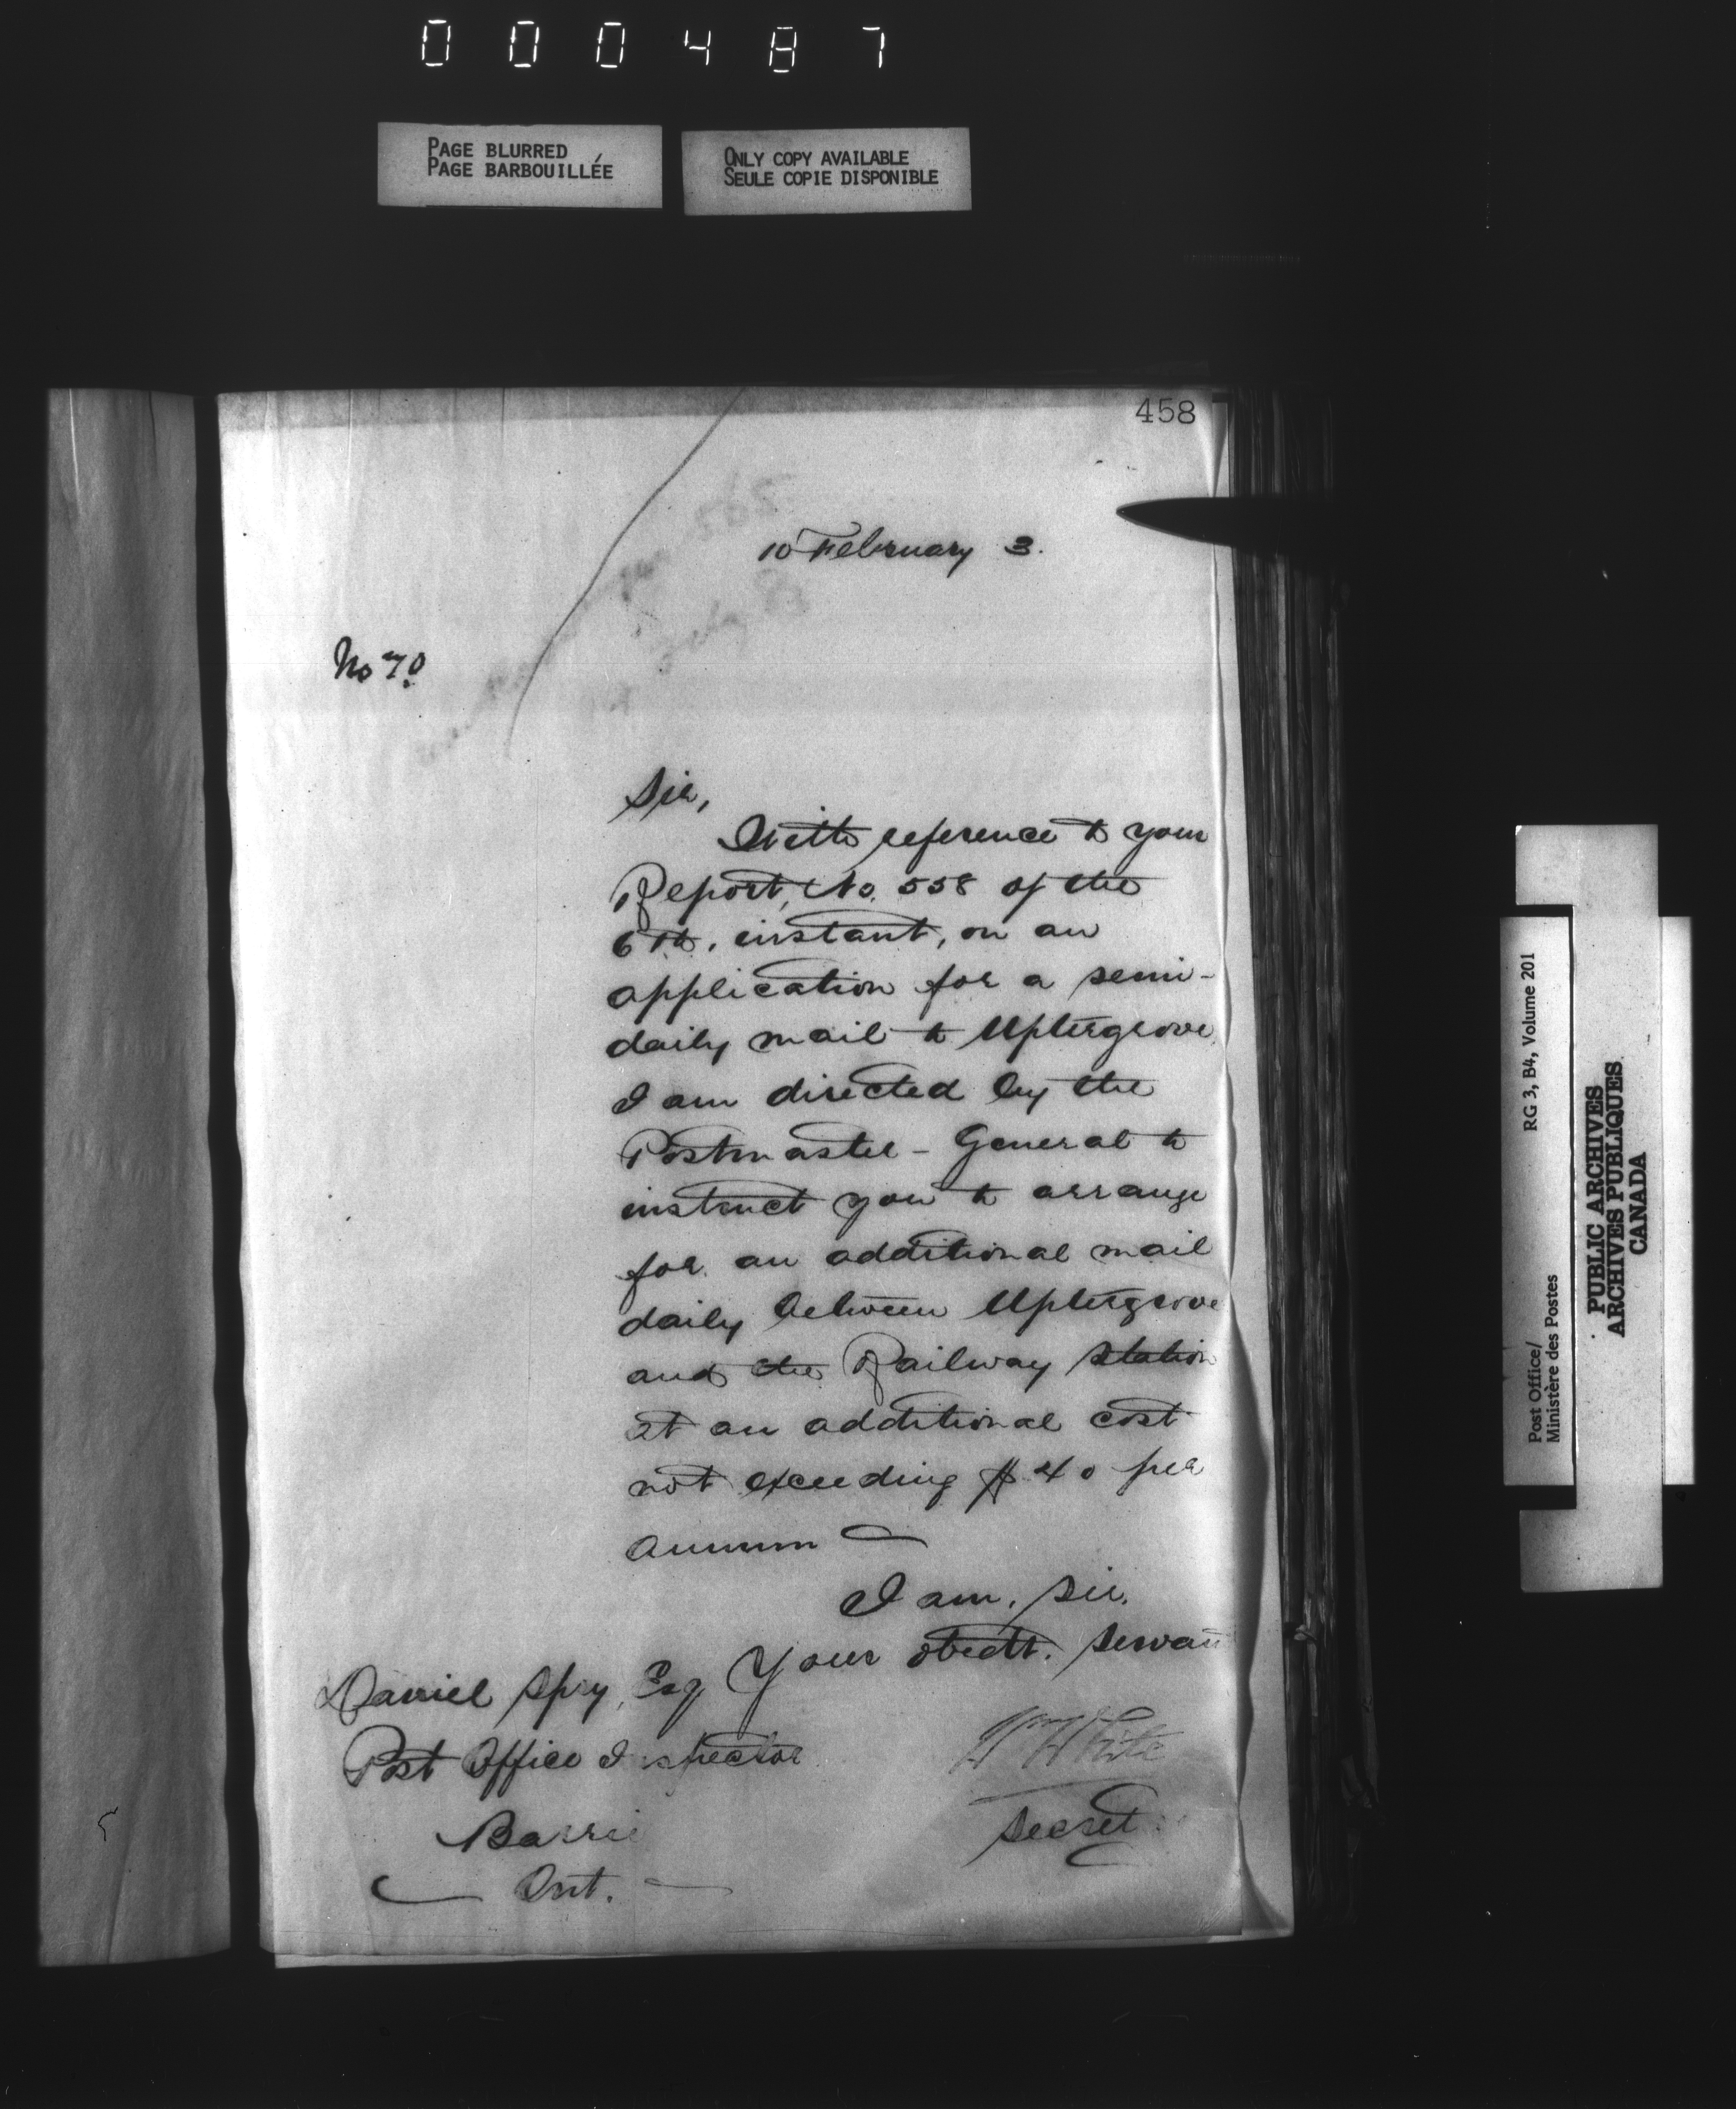 000487
PAGE BLURRED
PAGE BARBOUILLÉE
ONLY COPY AVAILABLE
SEULE COPIE DISPONIBLE
458
10 February 3.
No 70
Sir,
With reference to your
Report, No. 558 of the
6th. instant, on an
application for a semi-
daily mail to Uptergrove,
I am directed by the
Postmaster-General to
instruct you to arrange
for an additional mail
daily between Uptergrove
and the Railway Station
at an additional cost
not exceeding $40 per
annum
I am, Sir,
Your obedt. Servan
Daniel Spry, Esq
Post Office Inspector
Barrie
Ont.
Wm White
Secret
RG 3, B4, Volume 201
Post Office/
Ministère des Postes
PUBLIC ARCHIVES
ARCHIVES PUBLIQUES
CANADA